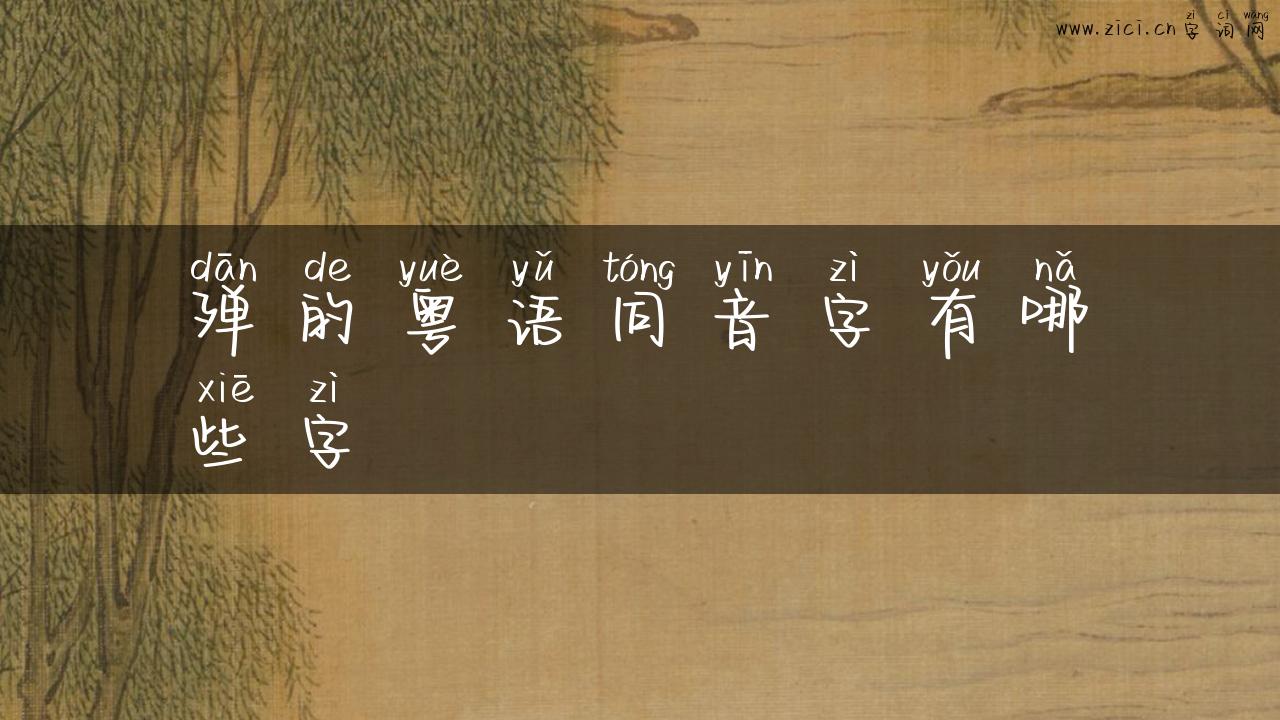 zì cí wǎng
www.zici.cn字词网
dān de yuè yǔ tóng yīn zì yǒu nǎ
殚的粤语同音字有哪
xiē zì
些字